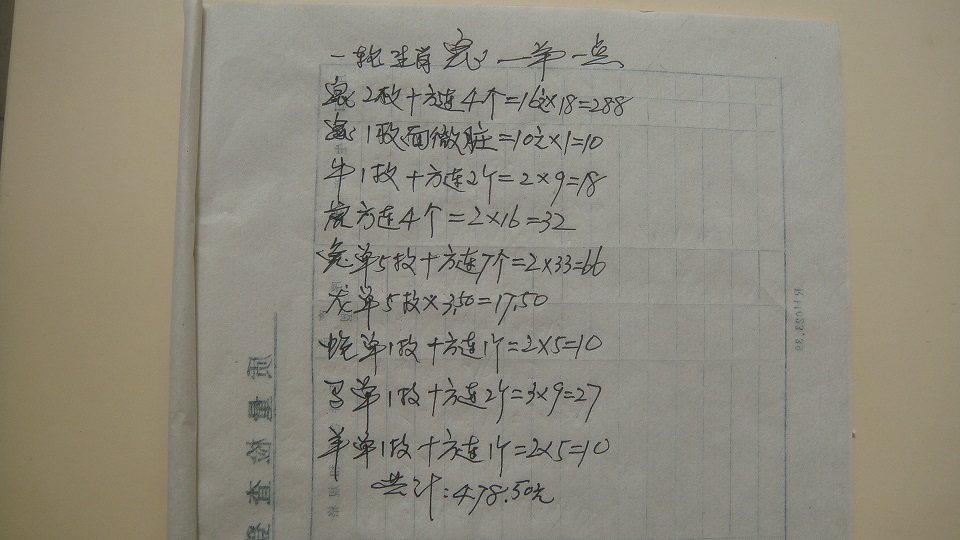 一轮生肖鼠——羊一点
鼠2枚+方连4个=16元×18=288
鼠1枚面微脏=10元×1=10
牛1枚+方连2个=2×9=18
虎方连4个=2×16=32
兔单5枚+方连7个=2×33=66
龙单5枚×3.50=17.50
蛇单1枚+方连1个=2×5=10
马单1枚+方连2个=3×9=27
羊单1枚+方连1个=2×5=10
共计:478.50元